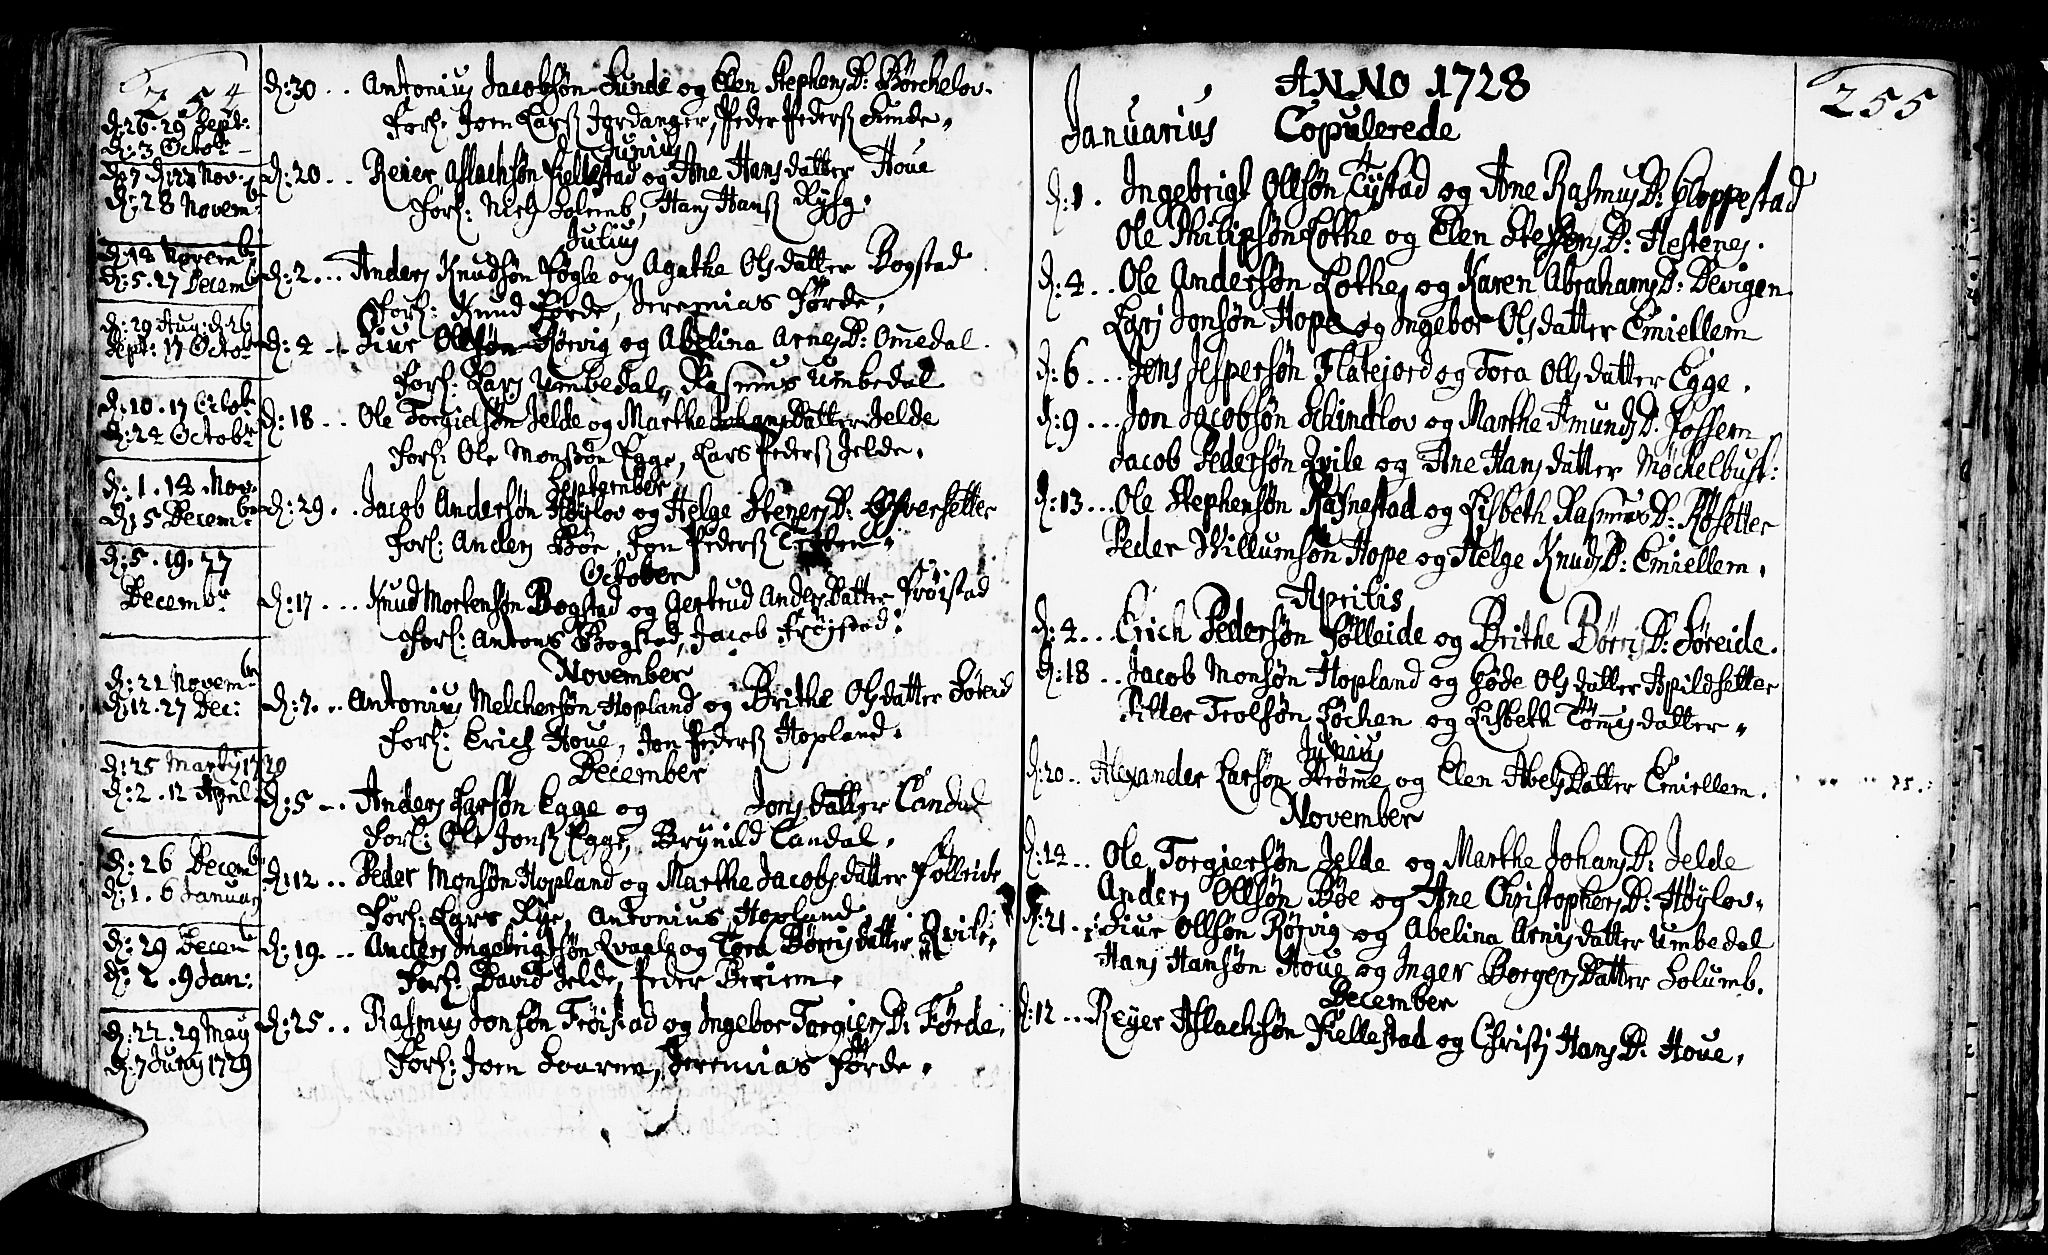 254
d: 26. 29 Sept:
d: 3 Octob: –
d: 7 d: 21 Nov:
d: 28 Novemb:
d: 14 Novemb:
d: 5. 27 Decemb
d: 29 Aug: d: 26
Sept: 17 Octob
d: 10. 17 Octob
d: 24 Octobr
d: 1. 14 Nov:
d: 5 Decembr
d: 5. 19. 27
Decembr
d: 21 Novembr
d: 12. 27 Dec:
d: 25 Marty 1720
d: 2. 12 April
d: 26 Decemb
d: 1. 6 Januar
d: 29 Decemb
d: 2. 9 Jan:
d: 22. 29 May
d: 7 Juny 1729
d: 30 .. Antonius Jacobsøn Sunde og Elen StephensD: Børchelov.
Forl: Joen Larss Jordanger, Peder Pederss Sunde.
Junius
d: 20 .. Reier Aslachsøn Fiellestad og Ane Hansdatter Houe
Forl: Nich Solemb, Hans Hanss Rysg.
Julius
d: 2 ... Anders Knudsøn Fogle og Agathe Olsdatter Bogstad
Forl: Knud Førde, Jeremias Førde.
d: 4 .. Siur Ollsøn Rørvig og Abelina ArnesD: Omedal.
Forl: Lars Umbedal, Rasmus Umbedal
d: 18 .. Ole Torgielsøn Jelde og Marthe JohansDatter Jelde
Forl: Ole Monssøn Egge, Lars Pederss Jelde.
September
d: 29 .. Jacob Andersøn Høylov og Helge StenersD:
Forl: Anders Bøe, Jon Pederss
October
d: 17 ... Knud Mortensøn Bogstad og Gertrud AndersDatter Frøistad
Forl: Antons Bogstad, Jacob Frøjstad:
November
d: 7 ... Antonius Melchersøn Hopland og Brithe Olsdatter Søreid
Forl: Erich Houe, Jon Pederss Hopland.
December
d: 5 ... Anders Larsøn Egge og Jonsdatter Candal
Forl: Ole Jonss Egge, Brynild Candal.
d: 12 .. Peder Monsøn Hopland og Marthe Jacobsdatter Følleide
Forl: Lars Rye, Antonius Hopland
d: 19 .. Anders Ingebrigtsøn og Tora Børrisdatter Qvile
Forl: David Jelde, Peder Beriem.
d: 25 .. Rasmus Jonsøn Frøistad og Ingebor TorgiersD: Førde.
Forl: Joen Soarem, Jeremias Førde.
255
ANNO 1728
Januarius Copulerede
d: 1. Ingebrigt Ollsøn Tÿstad og Ane RasmusD: Gloppestad
Ole Philipsøn Lothe og Elen D: Hestenes.
d: 4 .. Ole Andersøn Lothe og Karen AbrahamsD: Devigen
Lars Jonsøn Hope og Ingebor Olsdatter Emiellem
d: 6 ... Jens Jespersøn Flatejord og Tora Ollsdatter Egge.
d: 9 ... Jon Jacobsøn Schindlov og Marthe AmundsD: Fossem
Jacob Pedersøn Qvile og Ane Hansdatter Møchelbust:
d: 13 ... Ole Stephensøn Rasnestad og Lisbeth RasmusD: Røsetter
Peder Willumsøn Hope og Helge KnudsD: Emiellem.
Aprilis
d: 4 ... Erich Pedersøn Følleide og Brithe BørrisD: Søreide.
d: 18 .. Jacob Monsøn Hopland og Søde Olsdatter Apildsetter
Pitter Trolsøn Løchen og Lisbeth Tømmisdatter.
Junius
d: 20 .. Alexander Larsøn Strømme og Elen AbelsDatter Emiellem.
November
d: 14 .. Ole Torgiersøn Jelde og Marthe JohansD: Jelde
Anders Ollsøn Bøe og Ane ChristophersD: Høylov.
d: 21 .. Siur Ollsøn Rørvig og Abelina Arnisdatter Umbedal
Hans Hansøn Houe og Inger BorgersDatter Solumb.
December
d: 12 .. Reyer Aslachsøn Fiellestad og Christj HansD: Houe.